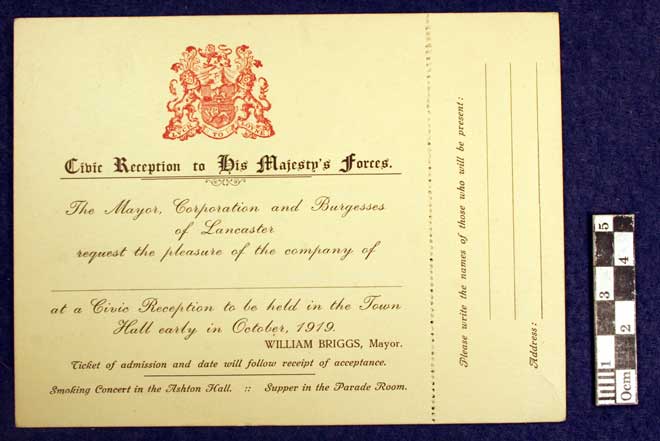 LUCK TO LOYNE
Civic Reception to His Majesty's Forces.
The Mayor, Corporation and Burgesses
of Lancaster
request the pleasure of the company of
at a Civic Reception to be held in the Town
Hall early in October, 1919.
WILLIAM BRIGGS, Mayor.
Ticket of admission and date will follow receipt of acceptance.
Smoking Concert in the Ashton Hall. :: Supper in the Parade Room.
Please write the names of those who will be present:
Address:
0cm 1 2 3 4 5